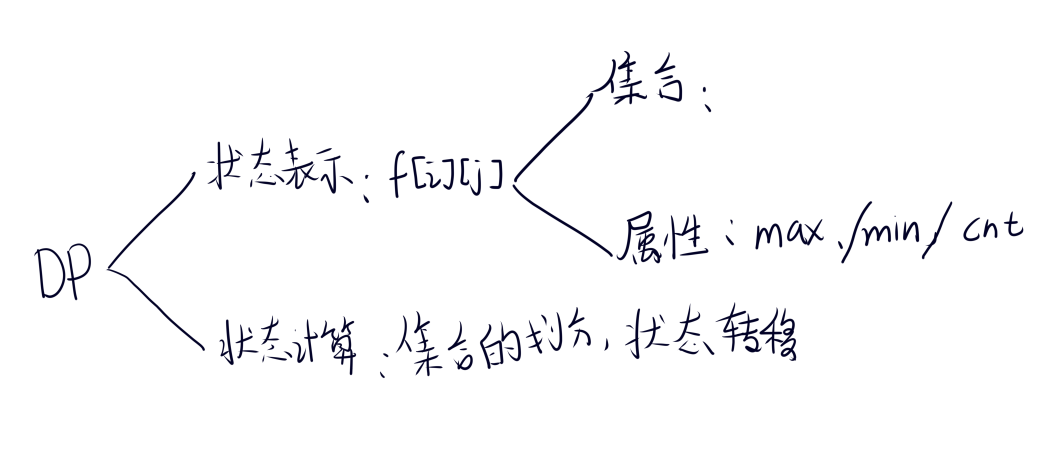 集合：
状态表示：f[i][j]
属性：max/min/cnt
DP
状态计算：集合的划分，状态转移